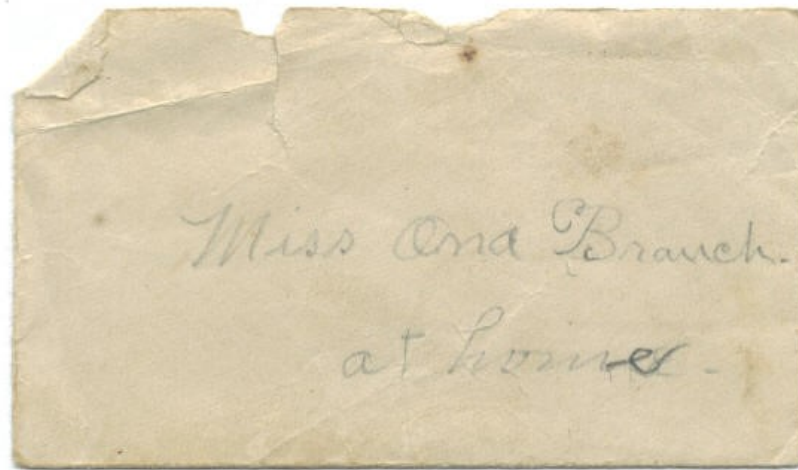 Miss Ona Branch.
at home.